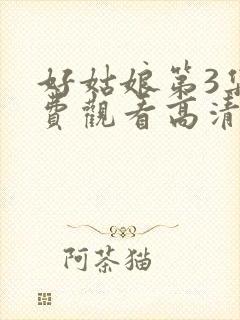 好姑娘第3集
費觀看高清
阿茶猫